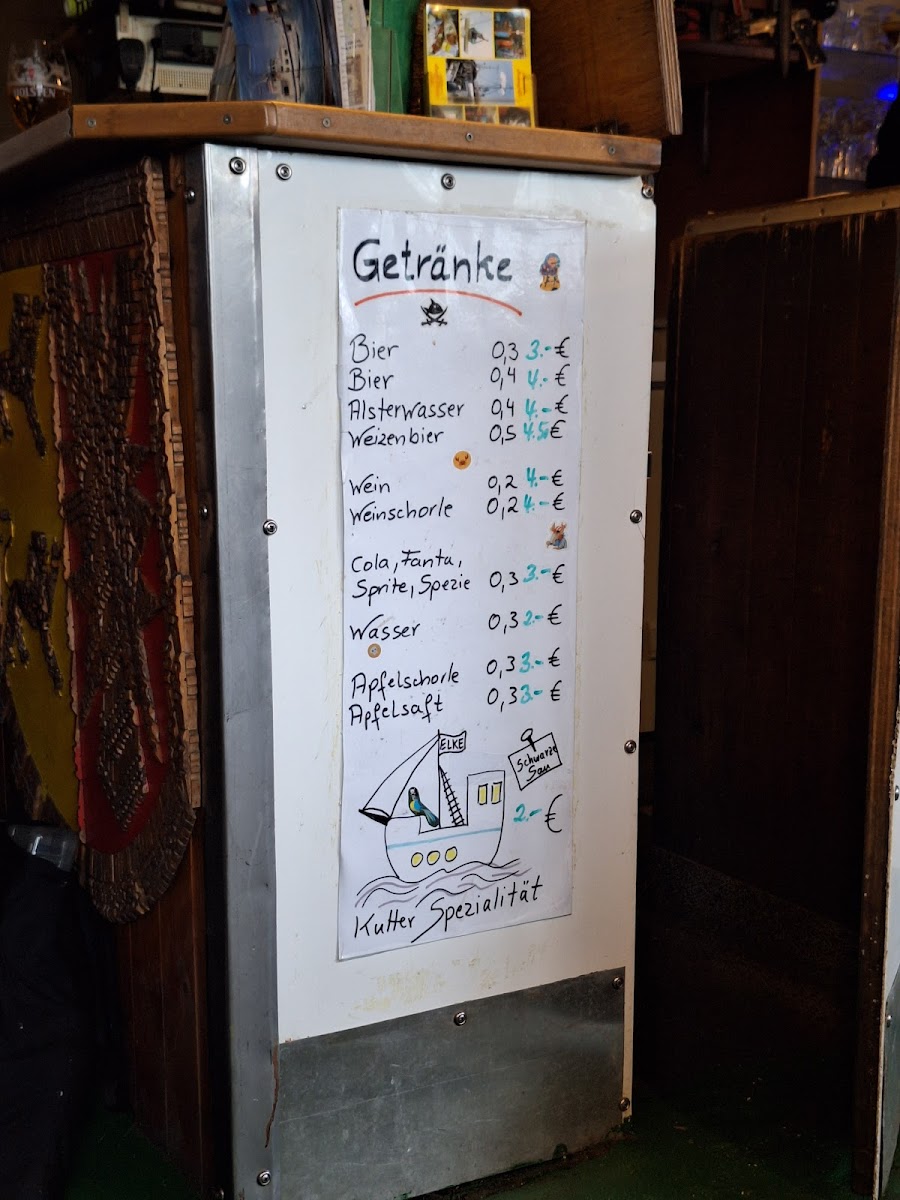 HOLSTEN
Getränke
Bier 0,3 3.- €
Bier 0,4 4.- €
Alsterwasser 0,4 4.- €
Weizenbier 0,5 4.5 €
Wein 0,2 4.- €
Weinschorle 0,2 4.- €
Cola, Fanta,
Sprite, Spezie 0,3 3.- €
Wasser 0,3 2.- €
Apfelschorle 0,3 3.- €
Apfelsaft 0,3 3.- €
ELKE
Schwarze
Sau
2.- €
Kutter Spezialität